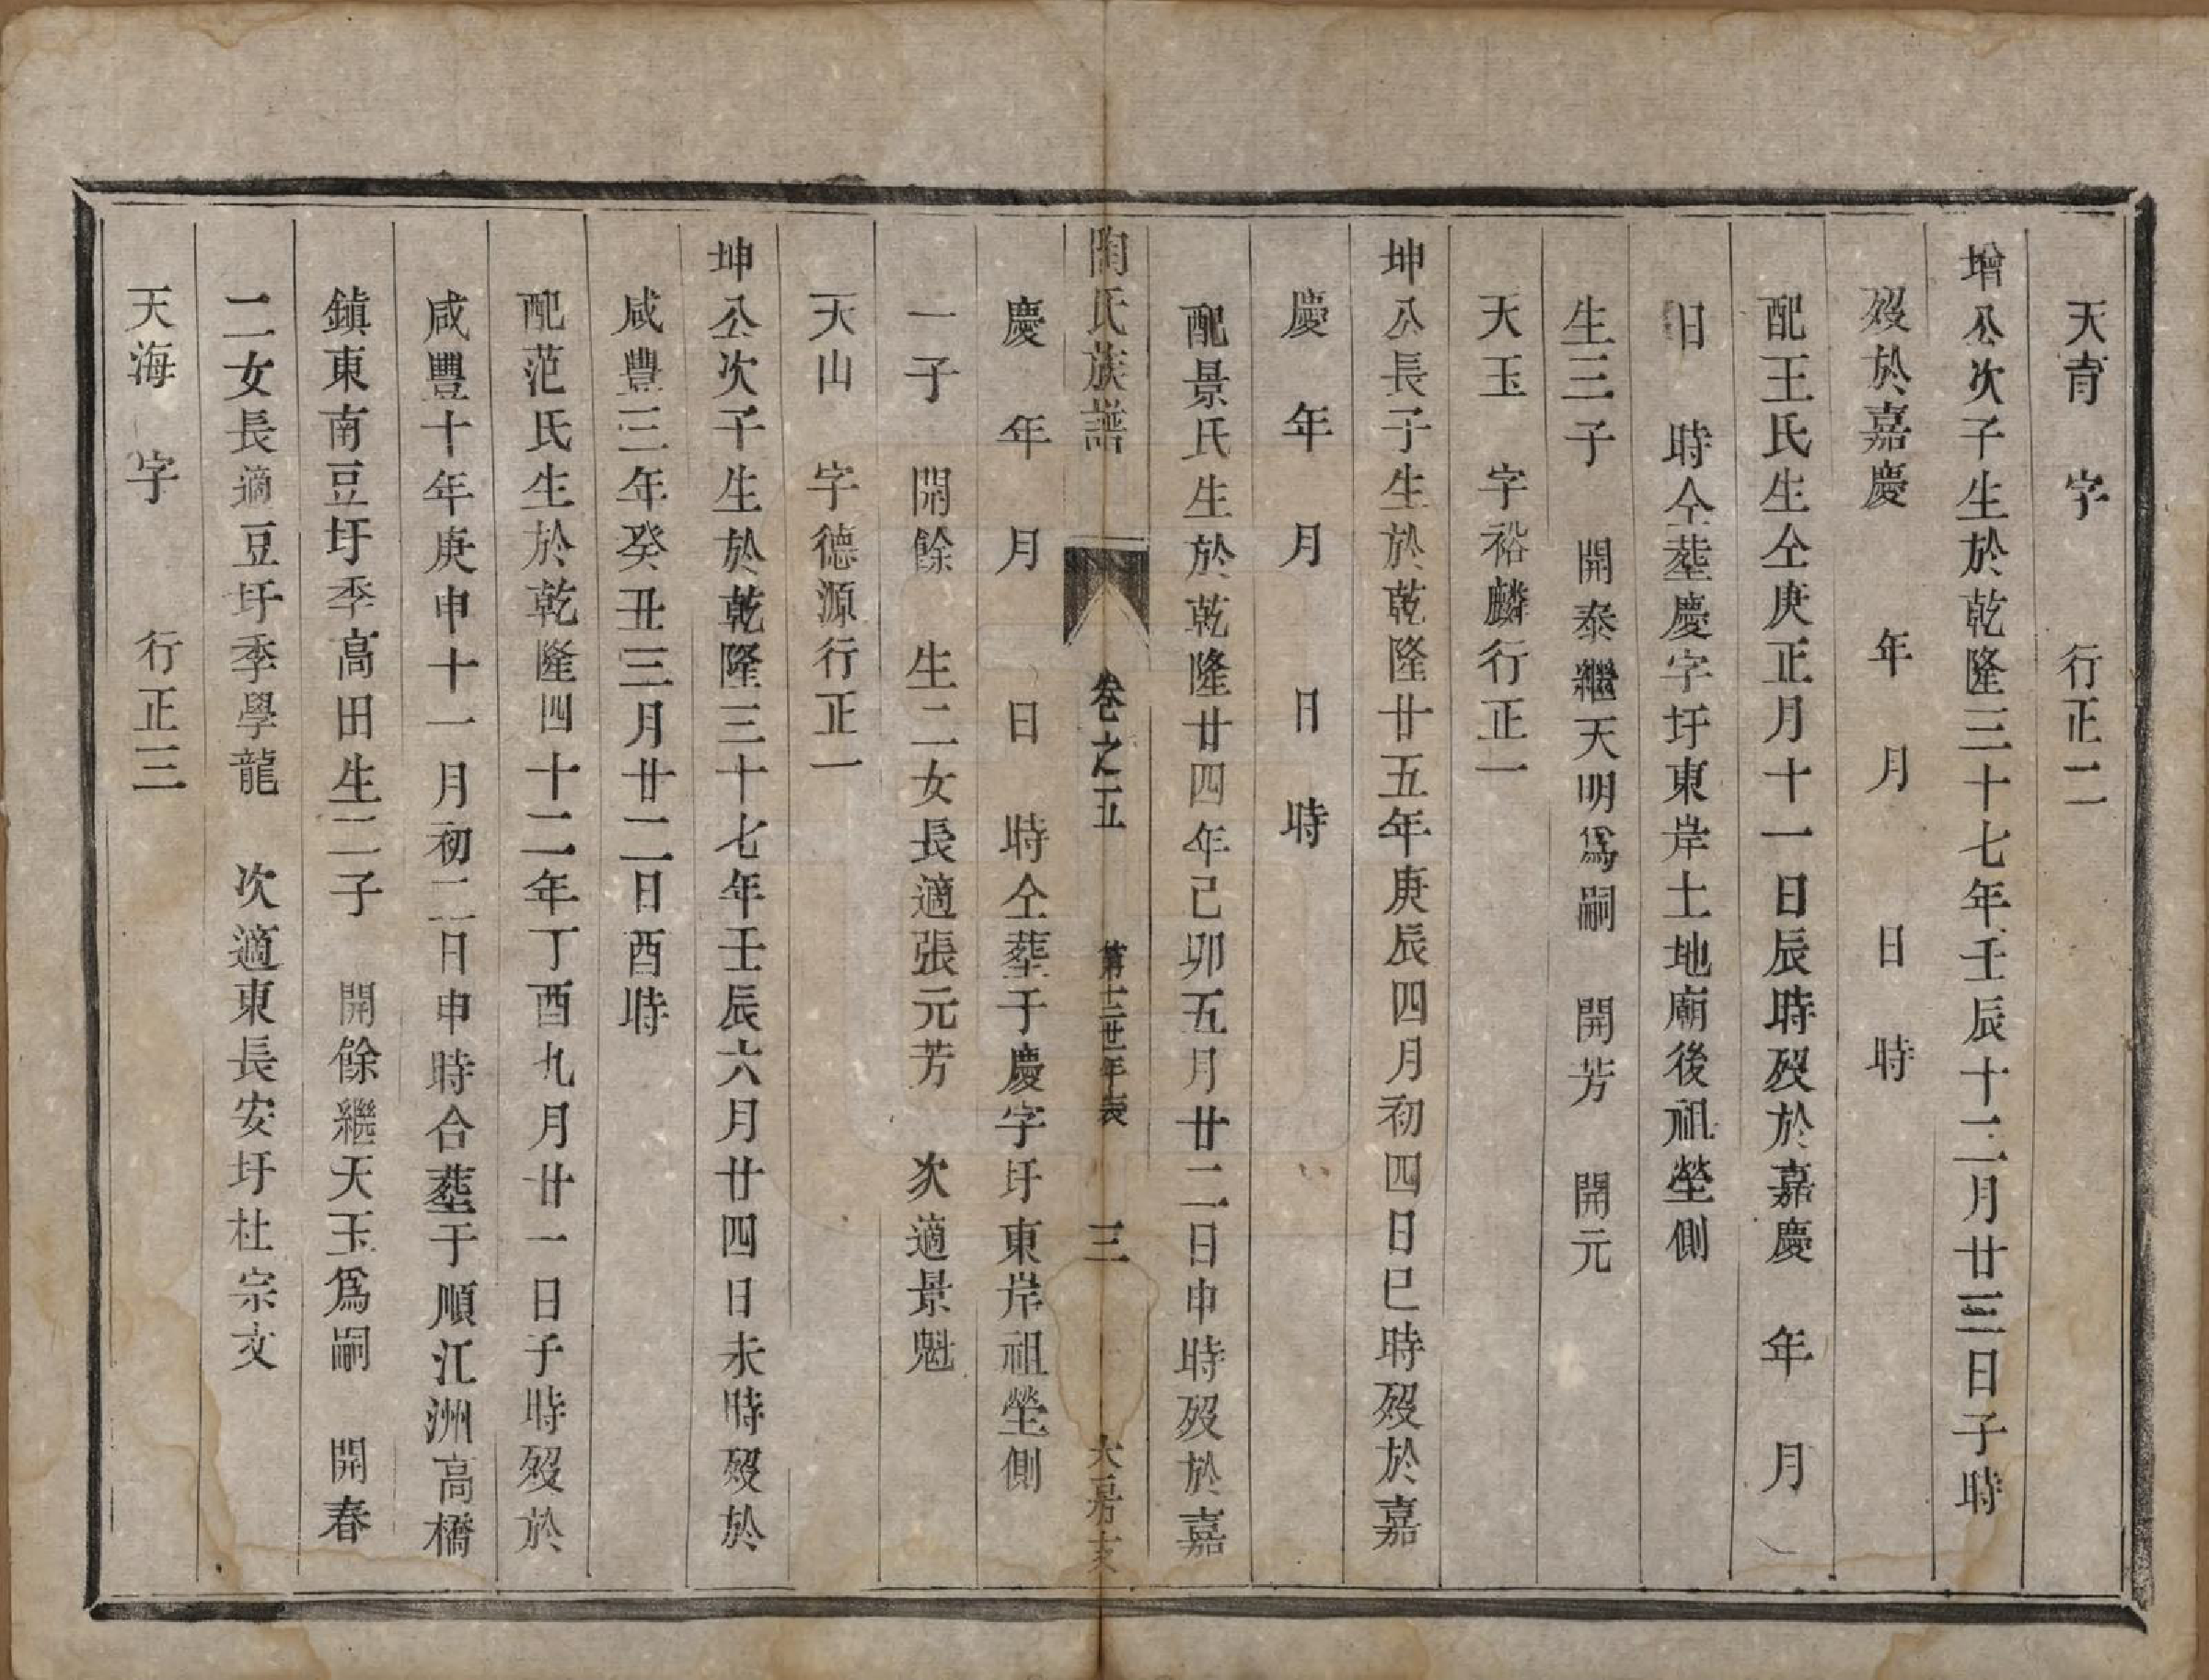 天育　字　　行正二
增公次子生於乾隆三十七年壬辰十二月廿三日子時
歿於嘉慶　　年　月　　日　時
配王氏生仝庚正月十一日辰時歿於嘉慶　年　月
日　時仝塟慶字圩東岸土地廟後祖塋側
生三子　開泰繼天明爲嗣　開芳　開元
天玉　字裕麟行正一
坤公長子生於乾隆廿五年庚辰四月初四日巳時歿於嘉
慶　年　月　　日　時
配景氏生於乾隆廿四年己卯五月廿二日申時歿於嘉
陶氏族譜　卷之五　第十三世年表　三　大房支
慶　年　月　　日　時仝塟于慶字圩東岸祖塋側
一子　開餘　生二女長適張元芳　次適景魁
天山　字德源行正一
坤公次子生於乾隆三十七年壬辰六月廿四日未時歿於
咸豐三年癸丑三月廿二日酉時
配范氏生於乾隆四十二年丁酉九月廿一日子時歿於
咸豐十年庚申十一月初二日申時合塟于順江洲高橋
鎮東南豆圩季高田生二子　開餘繼天玉爲嗣　開春
二女長適豆圩季學龍　次適東長安圩杜宗文
天海　字　　行正三